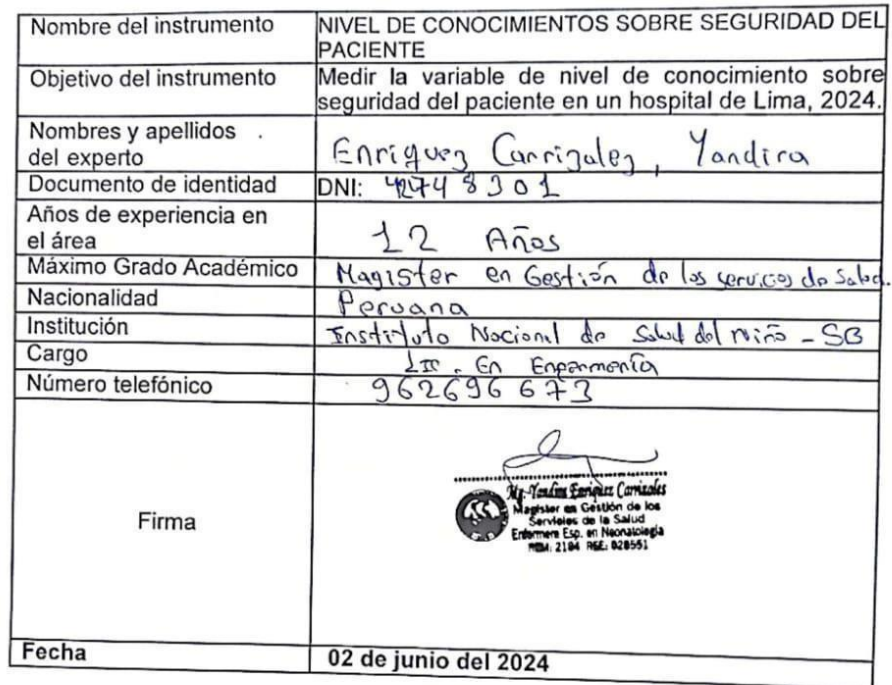 Nombre del instrumento
NIVEL DE CONOCIMIENTOS SOBRE SEGURIDAD DEL
PACIENTE
Objetivo del instrumento
Medir la variable de nivel de conocimiento sobre
seguridad del paciente en un hospital de Lima, 2024.
Nombres y apellidos
del experto
Enriquez Carrizales, Yandira
Documento de identidad
DNI: 42748301
Años de experiencia en
el área
12 Años
Máximo Grado Académico
Magister en Gestión de los servicios de Salud.
Nacionalidad
Peruana
Institución
Instituto Nacional de Salud del niño - SB
Cargo
Lic. En Enfermería
Número telefónico
962696673
Firma
Mg. Yandira Enriquez Carrizales
Magister en Gestión de los
Servicios de la Salud
Enfermera Esp. en Neonatología
2184 REE: 028551
Fecha
02 de junio del 2024